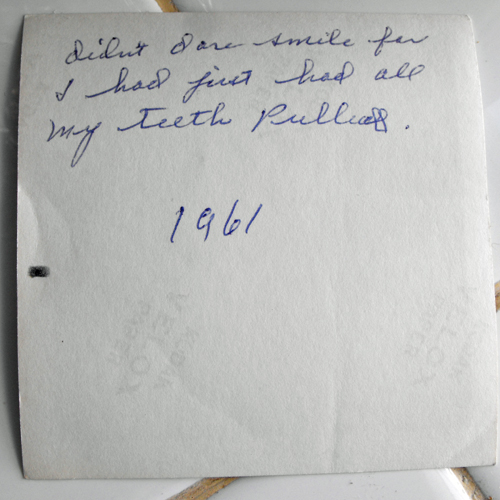 didn't dare smile for
I had just had all
my teeth Pulled.
1961
KODAK
VELOX
PAPER
VELOX
PAPER